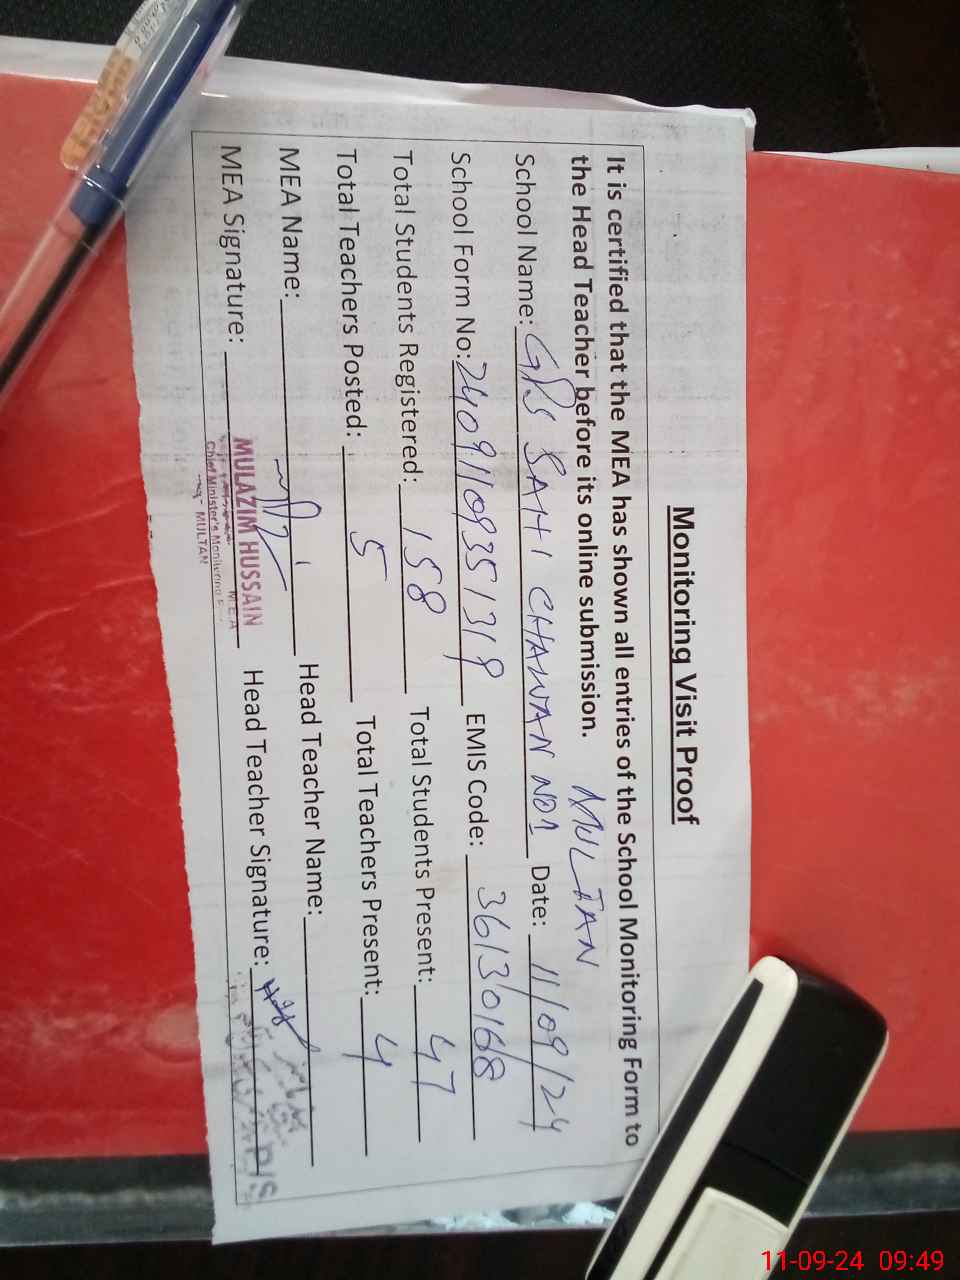 Monitoring Visit Proof
It is certified that the MEA has shown all entries of the School Monitoring Form to
the Head Teacher before its online submission. MULTAN
School Name: GPS SAHI CHAWAN NO1 Date: 11/09/24
School Form No: 24091109351319 EMIS Code: 36130168
Total Students Registered: 158 Total Students Present: 47
Total Teachers Posted: 5 Total Teachers Present: 4
MEA Name: Head Teacher Name:
MEA Signature: Head Teacher Signature:
MULAZIM HUSSAIN
M.E.A
Chief Minister's Monitoring
MULTAN
11-09-24 09:49